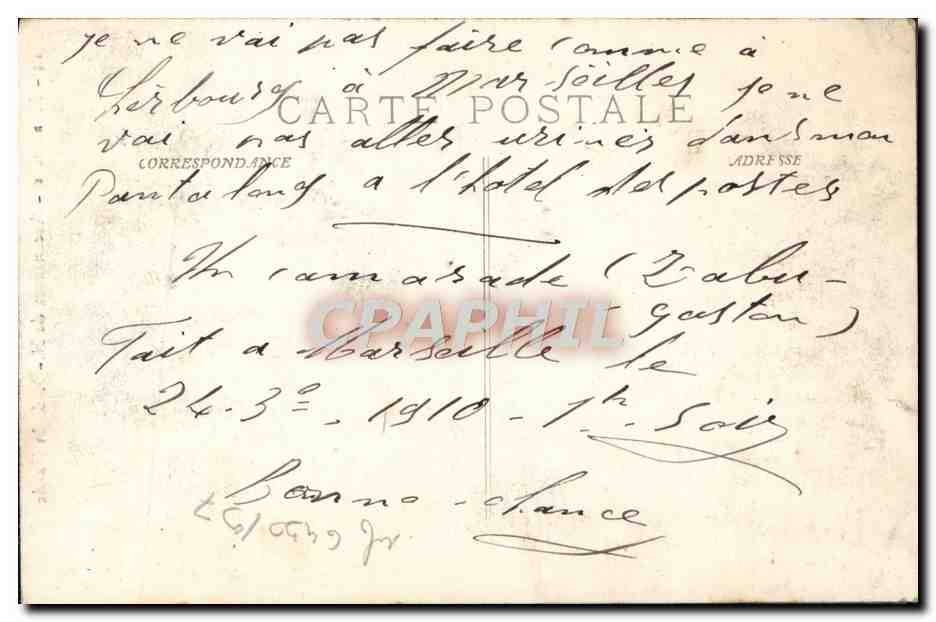 je ne vai pas faire comme à
Cherbourg à Marseilles je ne
CARTE POSTALE
vai pas aller uriner dans mon
CORRESPONDANCE
ADRESSE
Pantalong a l'hotel des postes
Un camarade (Zabu-
gaston)
CPAPHIL
Fait a Marseille le
24.3e. 1910 - 1h. Soir
Bonne chance